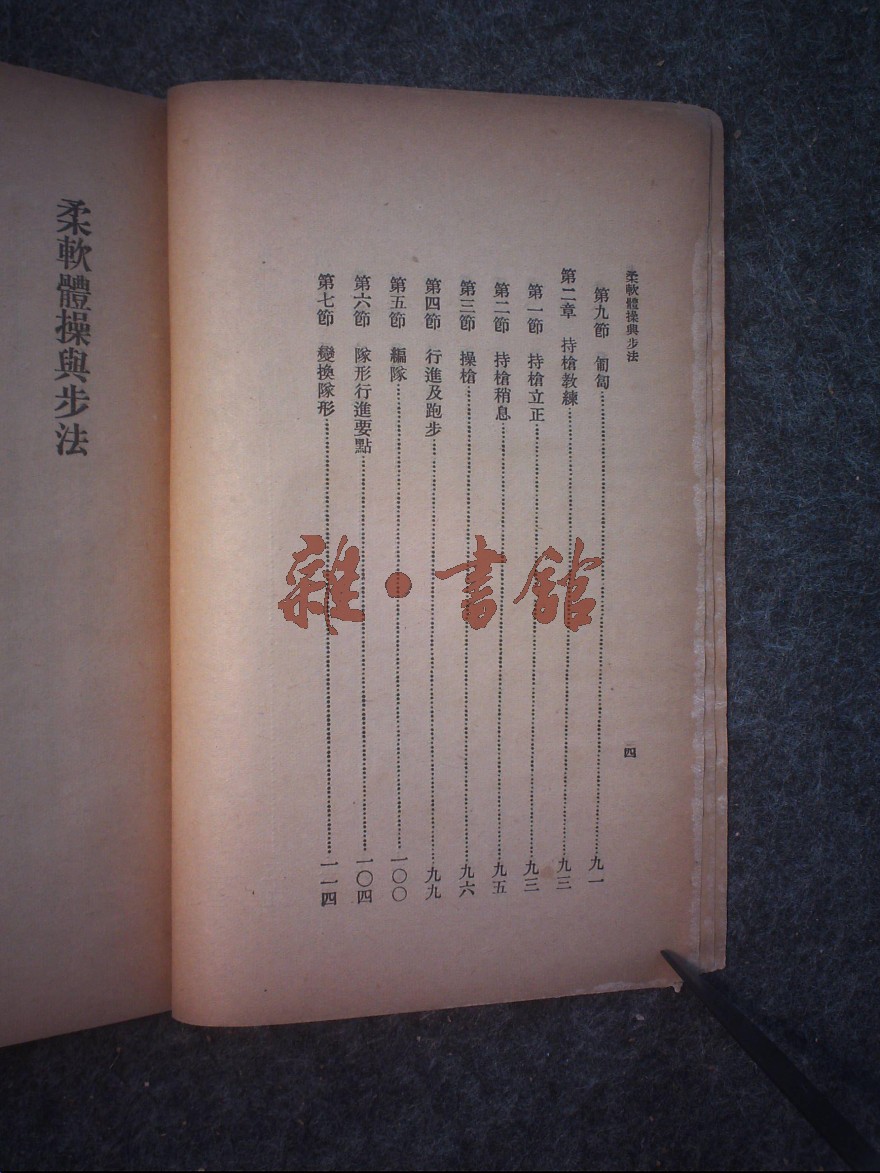 柔軟體操與步法
第九節 匍匐 九一
第二章 持槍教練 九三
第一節 持槍立正 九三
第二節 持槍稍息 九五
第三節 操槍 九六
第四節 行進及跑步 九九
第五節 編隊 一〇〇
第六節 隊形行進要點 一〇四
第七節 變換隊形 一一四
四
柔軟體操與步法
雜·書館